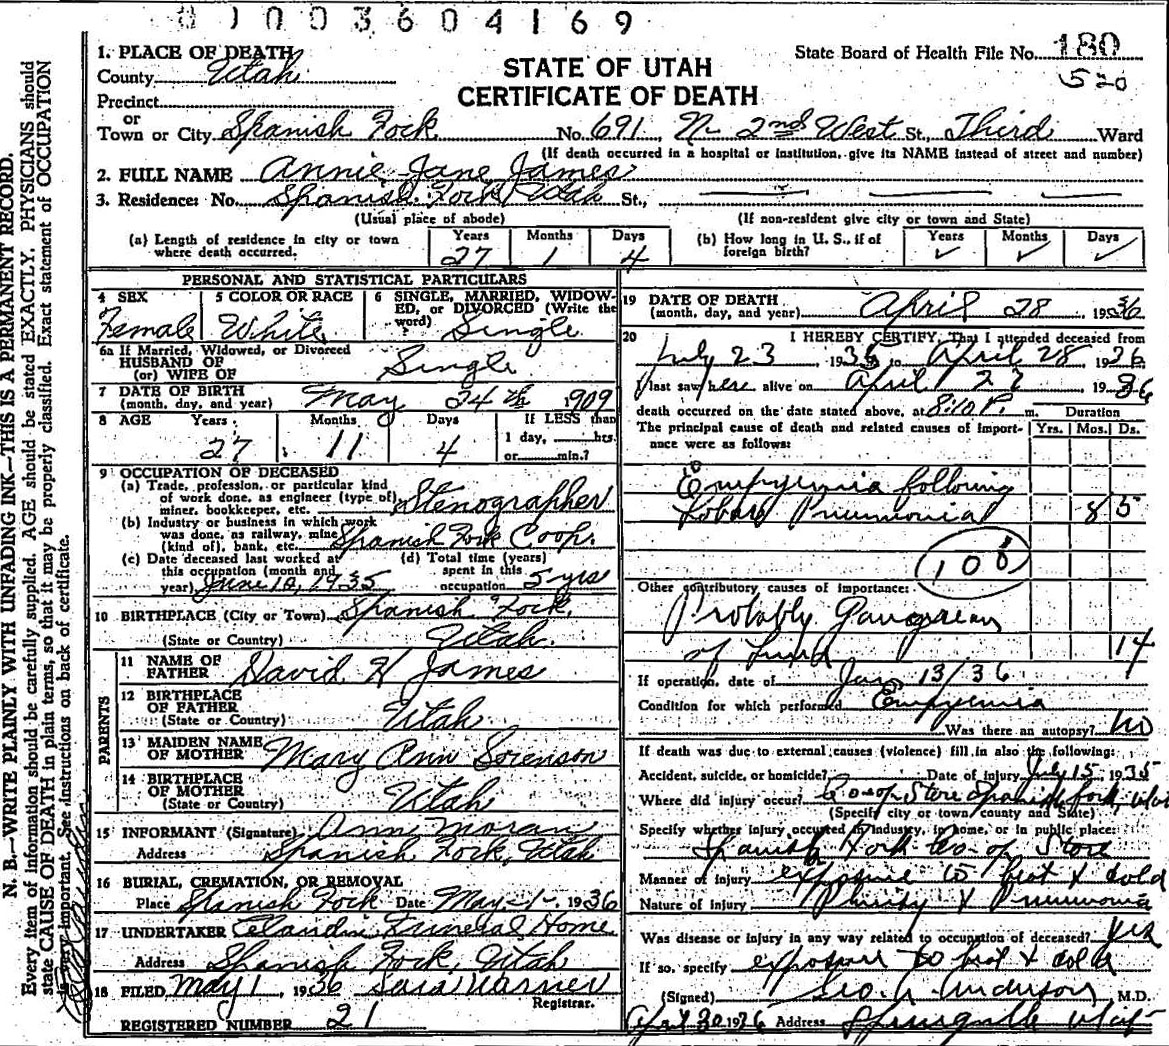 8 1 0 0 3 6 0 4 1 6 9
State Board of Health File No. 180
520
STATE OF UTAH
CERTIFICATE OF DEATH
1. PLACE OF DEATH
County Utah
Precinct
or
Town or City Spanish Fork No. 691 N 2nd West St., Third Ward
(If death occurred in a hospital or institution, give its NAME instead of street and number)
2. FULL NAME Annie Jane James
3. Residence: No. Spanish Fork Utah St.,
(Usual place of abode) (If non-resident give city or town and State)
(a) Length of residence in city or town where death occurred. Years 27 Months 1 Days 4
(b) How long in U. S., if of foreign birth? Years ✓ Months ✓ Days ✓
PERSONAL AND STATISTICAL PARTICULARS
4 SEX Female
5 COLOR OR RACE White
6 SINGLE, MARRIED, WIDOWED, or DIVORCED (Write the word) Single
6a If Married, Widowed, or Divorced
HUSBAND OF
(or) WIFE OF Single
7 DATE OF BIRTH
(month, day, and year) May 24th 1909
8 AGE Years 27 Months 11 Days 4 If LESS than 1 day, hrs. or min.?
9 OCCUPATION OF DECEASED
(a) Trade, profession, or particular kind of work done, as engineer (type of), miner, bookkeeper, etc. Stenographer
(b) Industry or business in which work was done, as railway, mine (kind of), bank, etc. Spanish Fork Coop.
(c) Date deceased last worked at this occupation (month and year) June 10, 1935
(d) Total time (years) spent in this occupation 5 yrs
10 BIRTHPLACE (City or Town) Spanish Fork,
(State or Country) Utah.
PARENTS
11 NAME OF FATHER David H James
12 BIRTHPLACE OF FATHER
(State or Country) Utah
13 MAIDEN NAME OF MOTHER Mary Ann Sorenson
14 BIRTHPLACE OF MOTHER
(State or Country) Utah
15 INFORMANT (Signature) Ann Moran
Address Spanish Fork, Utah
16 BURIAL, CREMATION, OR REMOVAL
Place Spanish Fork Date May-1- 1936
17 UNDERTAKER Claudin Funeral Home
Address Spanish Fork, Utah
18 FILED May 1, 1936 Sara Warner
Registrar.
REGISTERED NUMBER 21
19 DATE OF DEATH
(month, day, and year) April 28 1936
20 I HEREBY CERTIFY, That I attended deceased from
July 23, 1935 to April 28 1936
I last saw her alive on April 27 1936
death occurred on the date stated above, at 8:10 P. m. Duration
The principal cause of death and related causes of importance were as follows: Yrs. Mos. Ds.
Empyemia following
Lobar Pneumonia 8 5
108
Other contributory causes of importance:
Probably Gangrean
of Lung 14
If operation, date of Jan 13/36
Condition for which performed Empyemia
Was there an autopsy? No
If death was due to external causes (violence) fill in also the following:
Accident, suicide, or homicide? Date of injury July 15, 1935
Where did injury occur? Co-op Store Spanish Fork, Utah
(Specify city or town, county and State)
Specify whether injury occurred in industry, in home, or in public place:
Spanish Fork Co-op Store
Manner of injury exposure to heat & cold
Nature of injury Plurisy & Pneumonia
Was disease or injury in any way related to occupation of deceased? Yes
If so, specify exposure to heat & cold
(Signed) Geo. A. Anderson M.D.
April 30 1936 Address Springville Utah
N. B.—WRITE PLAINLY WITH UNFADING INK—THIS IS A PERMANENT RECORD.
Every item of information should be carefully supplied. AGE should be stated EXACTLY. PHYSICIANS should
state CAUSE OF DEATH in plain terms, so that it may be properly classified. Exact statement of OCCUPATION
is very important. See instructions on back of certificate.